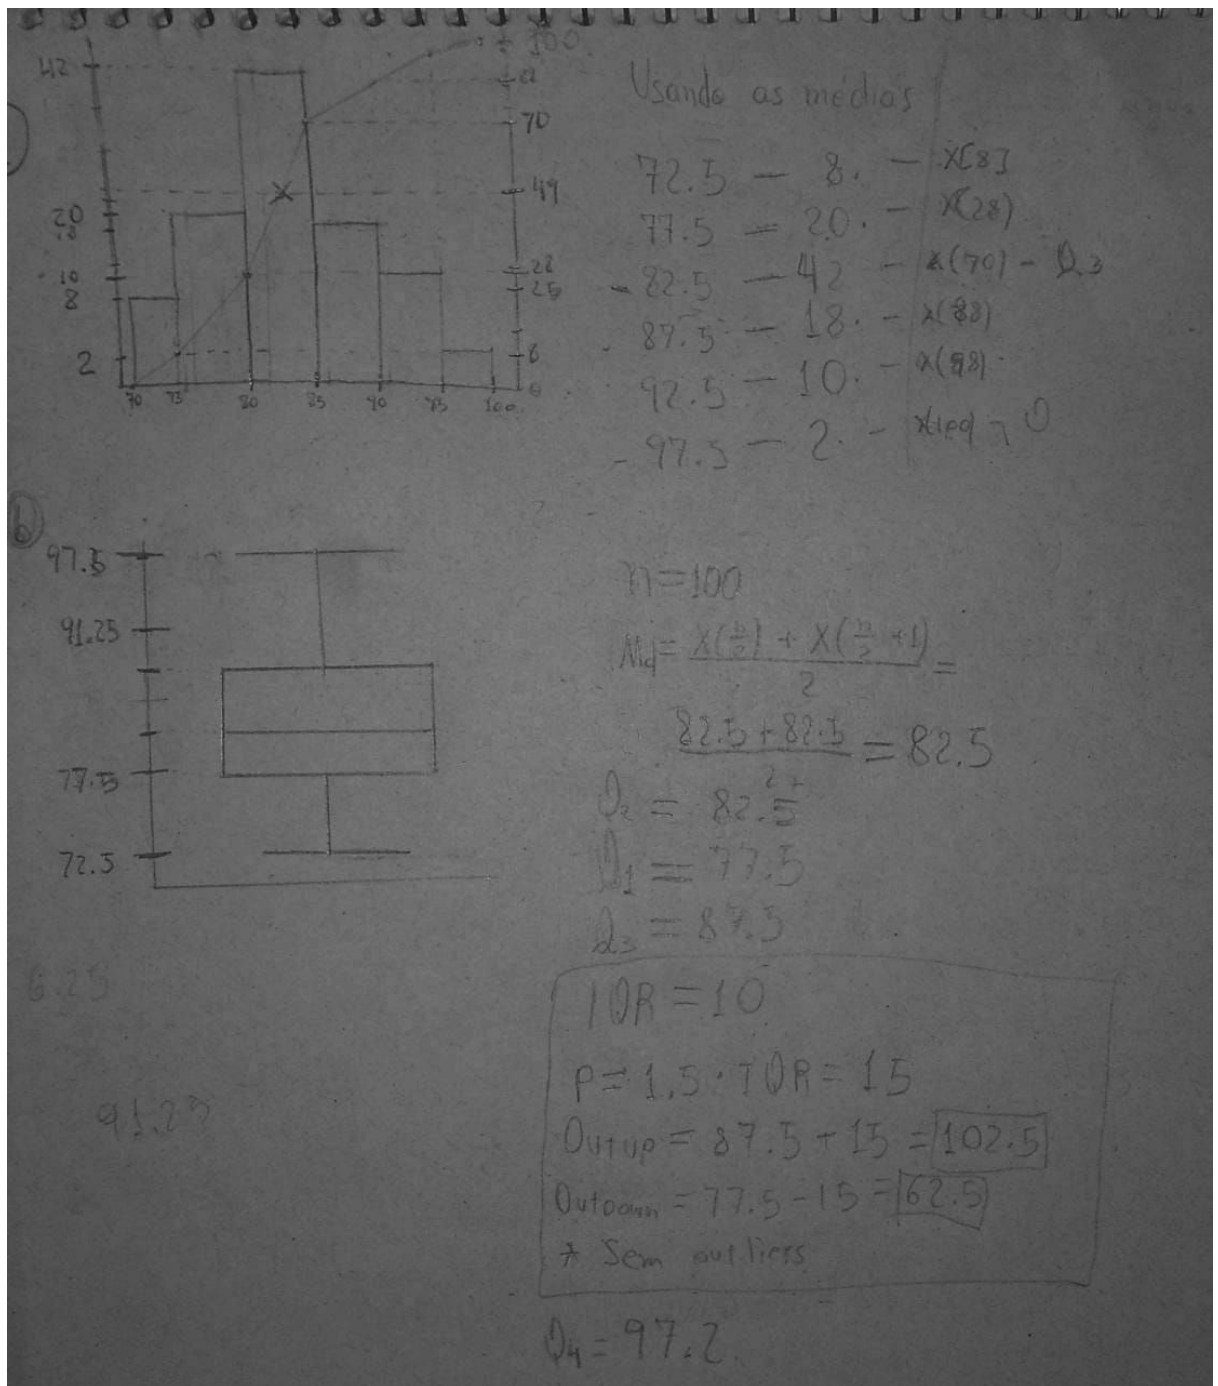 42
20
18
10
8
2
70 75 80 85 90 95 100
100
70
49
28
25
8
0
Usando as médias
72.5 — 8. — X[8]
77.5 — 20. — X(28)
- 82.5 — 42 — X(70) - Q3
87.5 — 18. — X(88)
92.5 — 10. — X(98)
- 97.5 — 2. —
b)
97.5
91.25
77.5
72.5
n=100
Md = X(n/2) + X(n/2 +1) / 2 =
82.5+82.5 / 2 = 82.5
Q2 = 82.5
Q1 = 77.5
Q3 = 87.5
6.25
IQR = 10
P = 1.5 · IQR = 15
91.25
Outup = 87.5 + 15 = 102.5
Outdown = 77.5 - 15 = 62.5
* Sem outliers
Q4 = 97.2